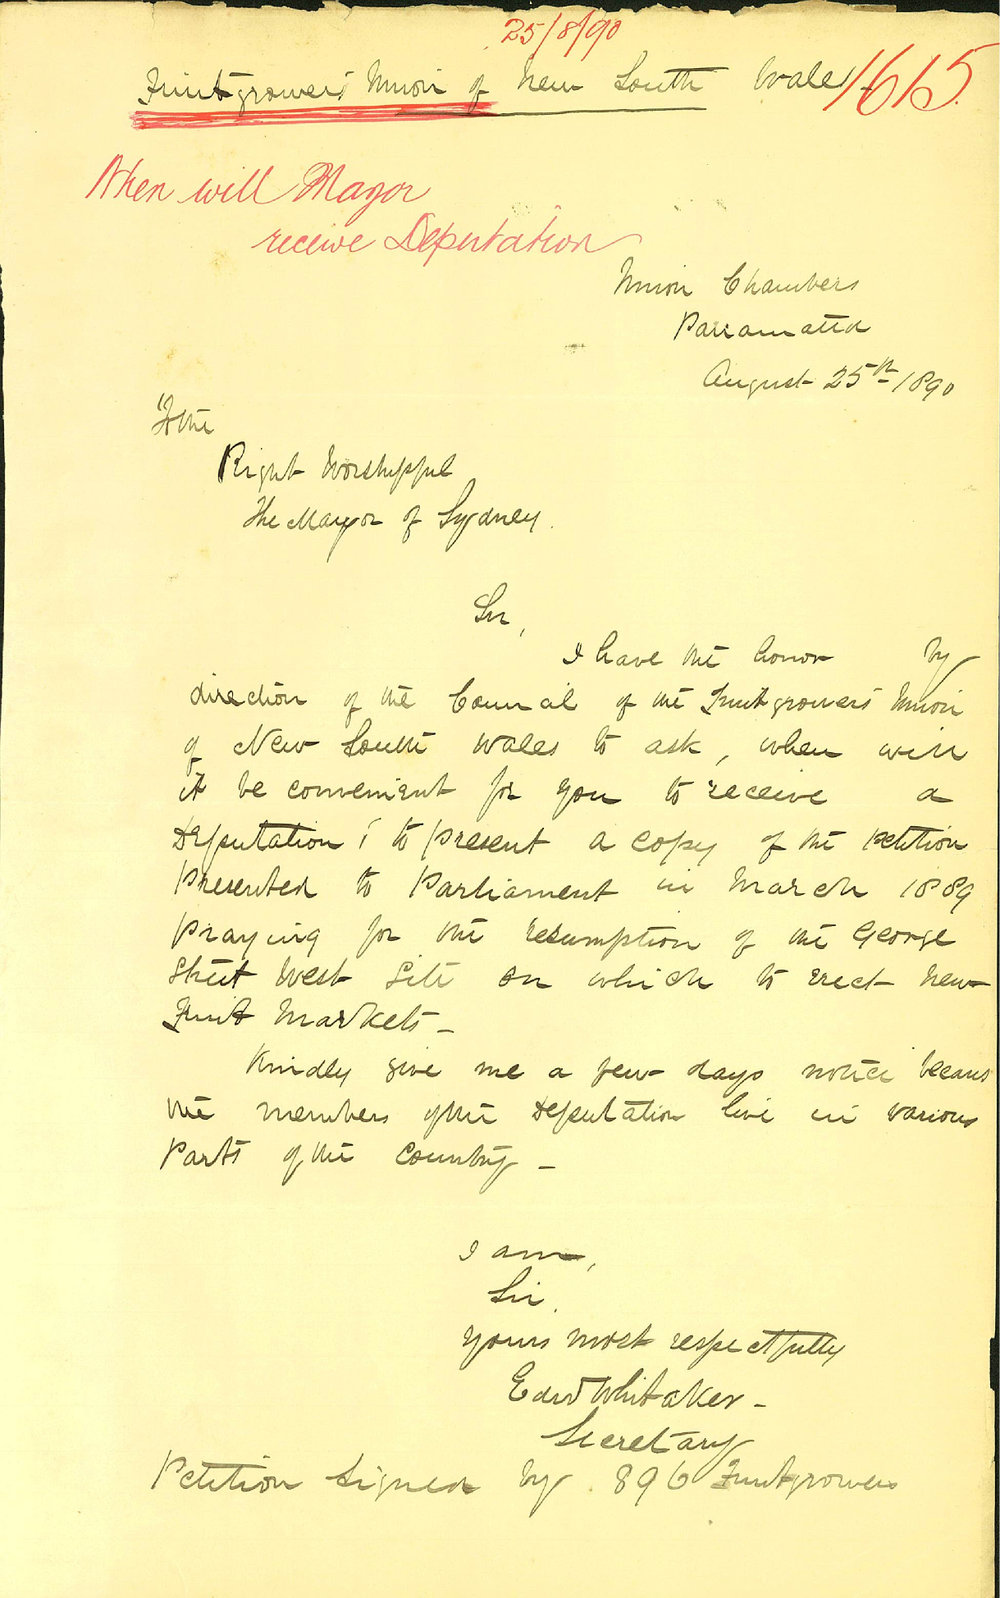 25/8/90
Fruitgrowers' Union of New South Wales 1615.
When will Mayor
receive Deputation
Union Chambers
Parramatta
August 25th 1890
To the
Right Worshipful
The Mayor of Sydney.
Sir,
I have the honor by
direction of the Council of the Fruitgrowers' Union
of New South Wales to ask, when will
it be convenient for you to receive a
Deputation; to present a copy of the petition
presented to Parliament in March 1889
praying for the resumption of the George
Street West Site on which to erect new
Fruit Markets _
Kindly give me a few days notice because
the members of the Deputation live in various
parts of the country _
I am,
Sir.
Yours most respectfully
Edwd Whitaker _
Secretary
Petition signed by 896 Fruitgrowers